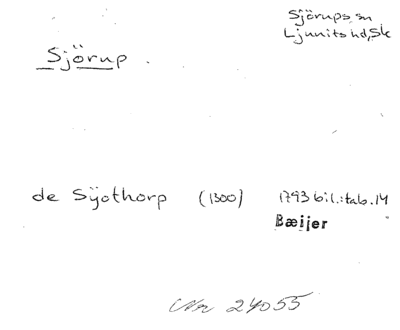 Sjörups sn
Ljunits hd, Sk
Sjörup.
de Sÿothorp (1300) 1793 bil.: tab. 14
Bæijer
Nr 24055